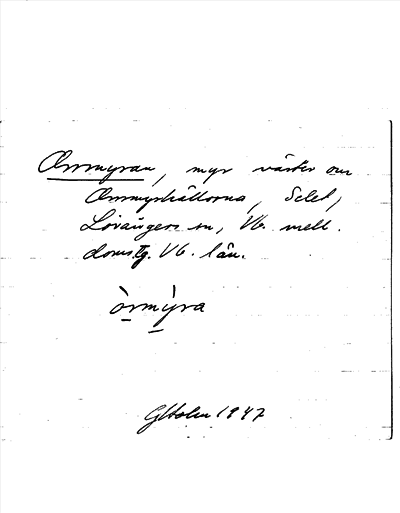 Ormmyran, myr väster om
Ormmyrhällorna, Selet,
Lövångers sn, Vb. mell.
domstg. Vb. län.
òrmỳra
GHolm 1947